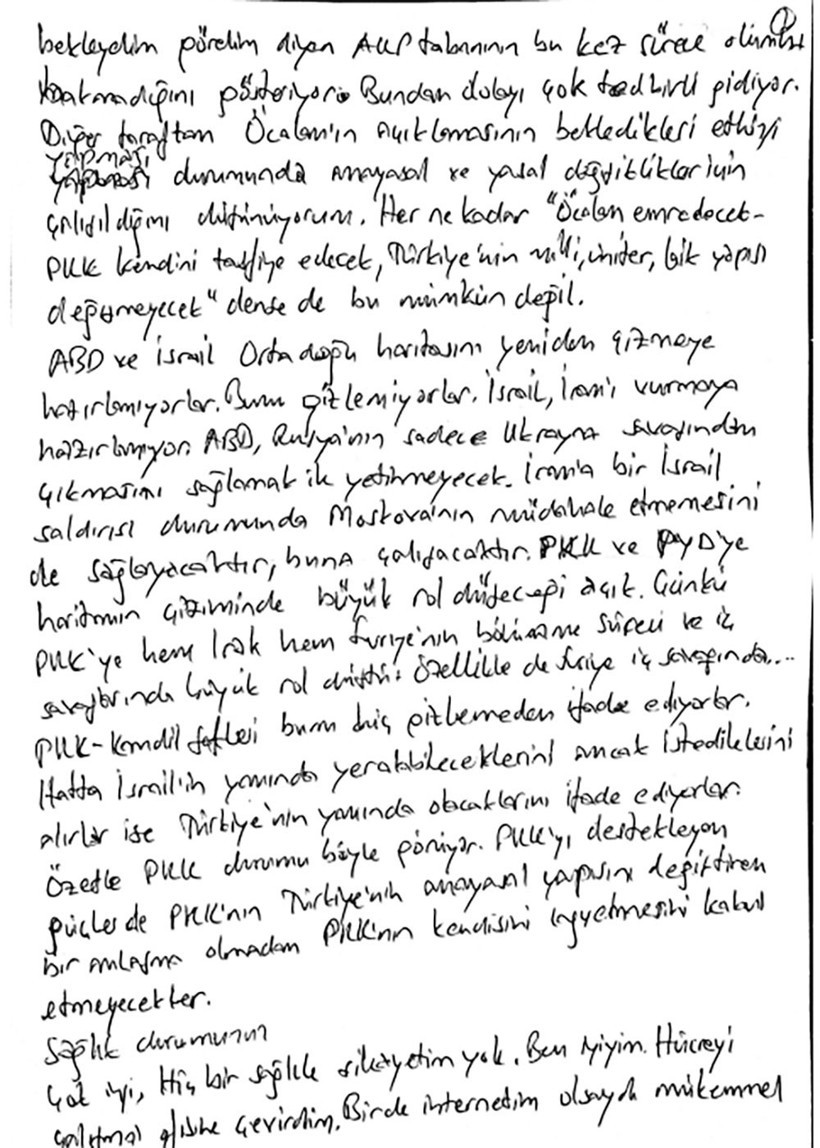 2
bekleyelim görelim diyen AKP tabanının bu kez sürece olumlu
bakmadığını gösteriyor. Bundan dolayı çok tedbirli gidiyor.
Diğer taraftan Öcalan'ın açıklamasının bekledikleri etkiyi
yapması
yapması durumunda anayasal ve yasal değişiklikler için
çalışıldığını düşünüyorum. Her ne kadar "Öcalan emredecek-
PKK kendini tasfiye edecek, Türkiye'nin milli, üniter, laik yapısı
değişmeyecek" dense de bu mümkün değil.
ABD ve İsrail Ortadoğu haritasını yeniden çizmeye
hazırlanıyorlar. Bunu gizlemiyorlar. İsrail, İran'ı vurmaya
hazırlanıyor. ABD, Rusya'nın sadece Ukrayna savaşından
çıkmasını sağlamak ile yetinmeyecek. İran'a bir İsrail
saldırısı durumunda Moskova'nın müdahale etmemesini
de sağlayacaktır, buna çalışacaktır. PKK ve PYD'ye
haritanın çiziminde büyük rol düşeceği açık. Çünkü
PKK'ye hem Irak hem Suriye'nin bölünme süreci ve iç
savaşlarında büyük rol düştü. Özellikle de Suriye iç savaşında...
PKK-Kandil şefleri bunu hiç gizlemeden ifade ediyorlar.
Hatta İsrail'in yanında yeralabileceklerini ancak istediklerini
alırlar ise Türkiye'nin yanında olacaklarını ifade ediyorlar.
Özetle PKK durumu böyle görüyor. PKK'yı destekleyen
güçler de PKK'nın Türkiye'nin anayasal yapısını değiştiren
bir anlaşma olmadan PKK'nın kendisini lağvetmesini kabul
etmeyecekler.
Sağlık durumunun
Çok iyi, Hiç bir sağlık şikayetim yok. Ben iyiyim. Hücreyi
çalışma ofisine çevirdim. Birde internetim olsaydı mükemmel